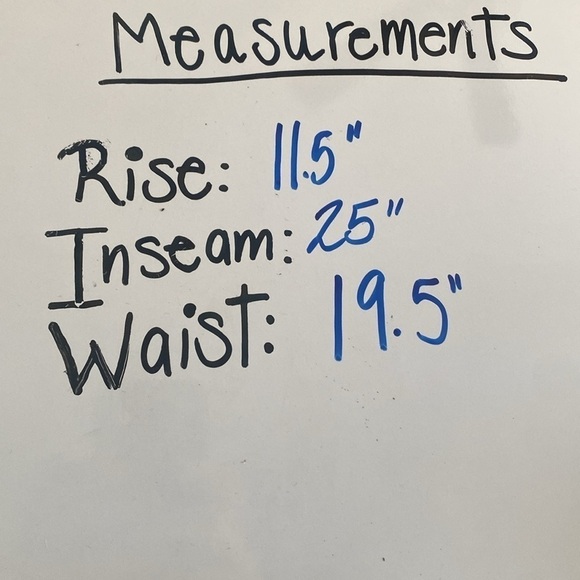 Measurements
Rise: 11.5"
Inseam: 25"
Waist: 19.5"